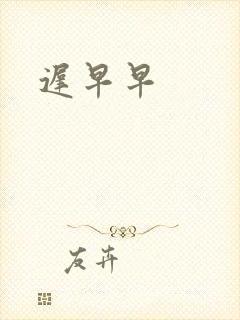 遲早早
友卉